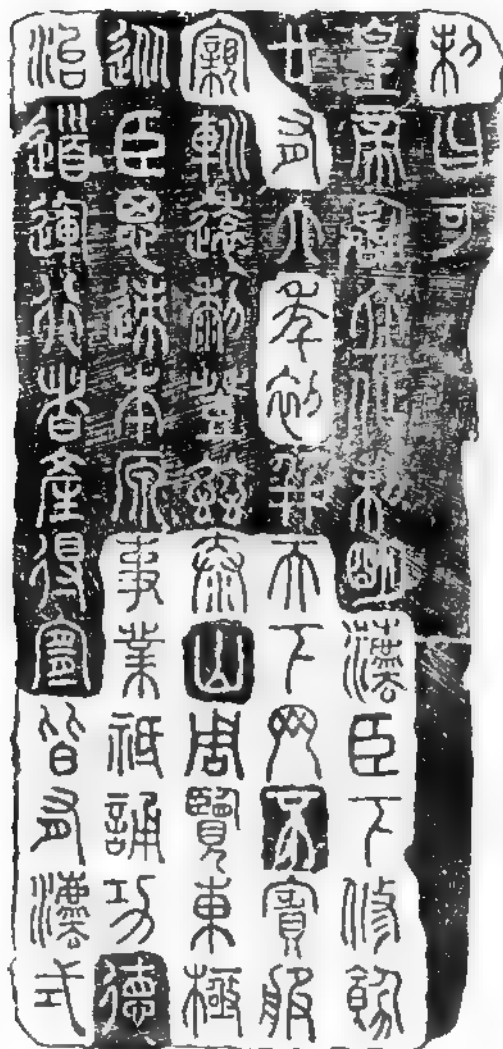 制曰可
皇帝臨立作制明灋臣下修飭
廿有六年初并天下罔不賓服
親𨊠遠黎登茲泰山周覽東極
從臣思迹本原事業祗誦功德
治道運行者產得宜皆有灋式